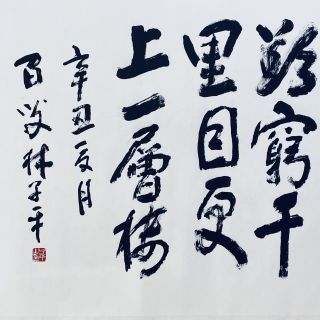 欲窮千
里目更
上一層樓
辛丑夏月
百林子平